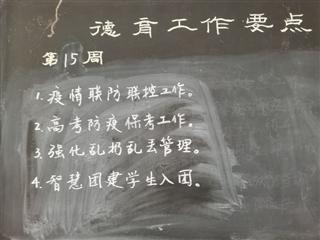 德育工作要点
第15周
1.疫情联防联控工作。
2.高考防疫保考工作。
3.强化乱扔乱丢管理。
4.智慧团建学生入团。